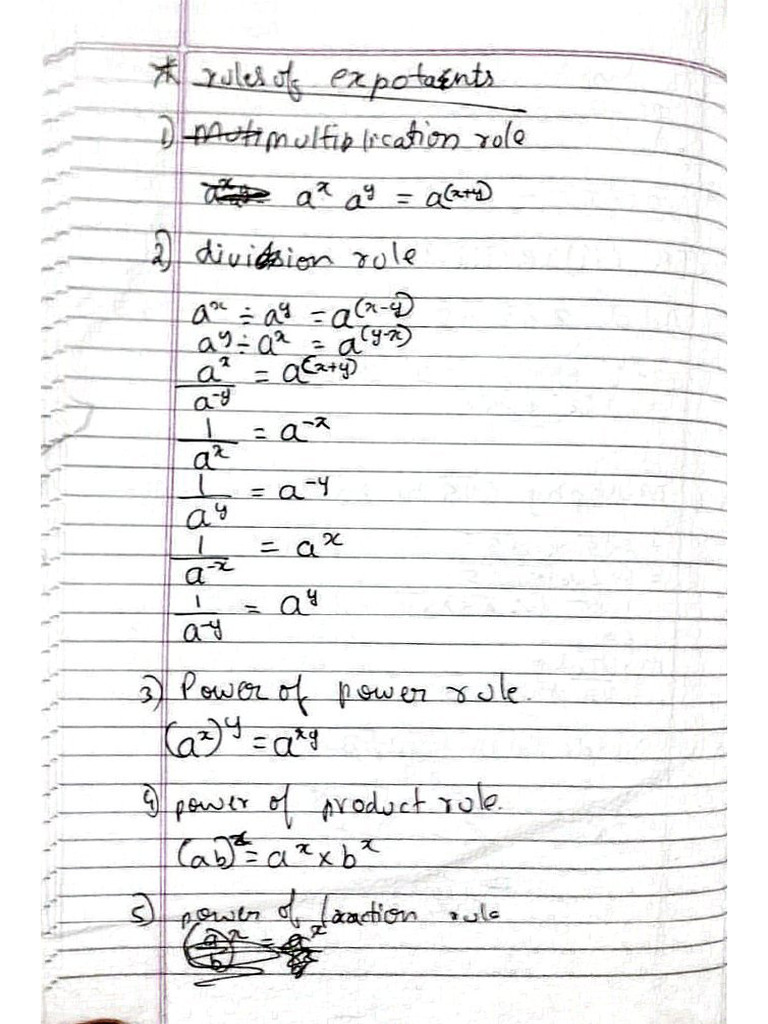 * rules of expotaents
1) multiplication role
a^x a^y = a^(x+y)
2) division role
a^x ÷ a^y = a^(x-y)
a^y ÷ a^x = a^(y-x)
a^x / a^-y = a^(x+y)
1 / a^x = a^-x
1 / a^y = a^-y
1 / a^-x = a^x
1 / a^-y = a^y
3) Power of power rule.
(a^x)^y = a^xy
4) power of product rule.
(ab)^x = a^x × b^x
5) power of fraction rule